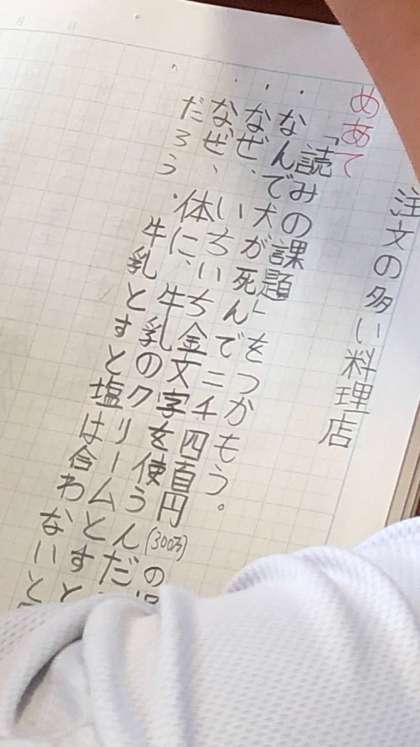 注文の多い料理店
めあて
「読みの課題」をつかもう。
・なんで犬が死んで二千四百円(300万)の
・なぜ、いちいち金文字を使うんだ
・なぜ、体に、牛乳のクリームとすと
だろう。
牛乳とすと塩は合わないと